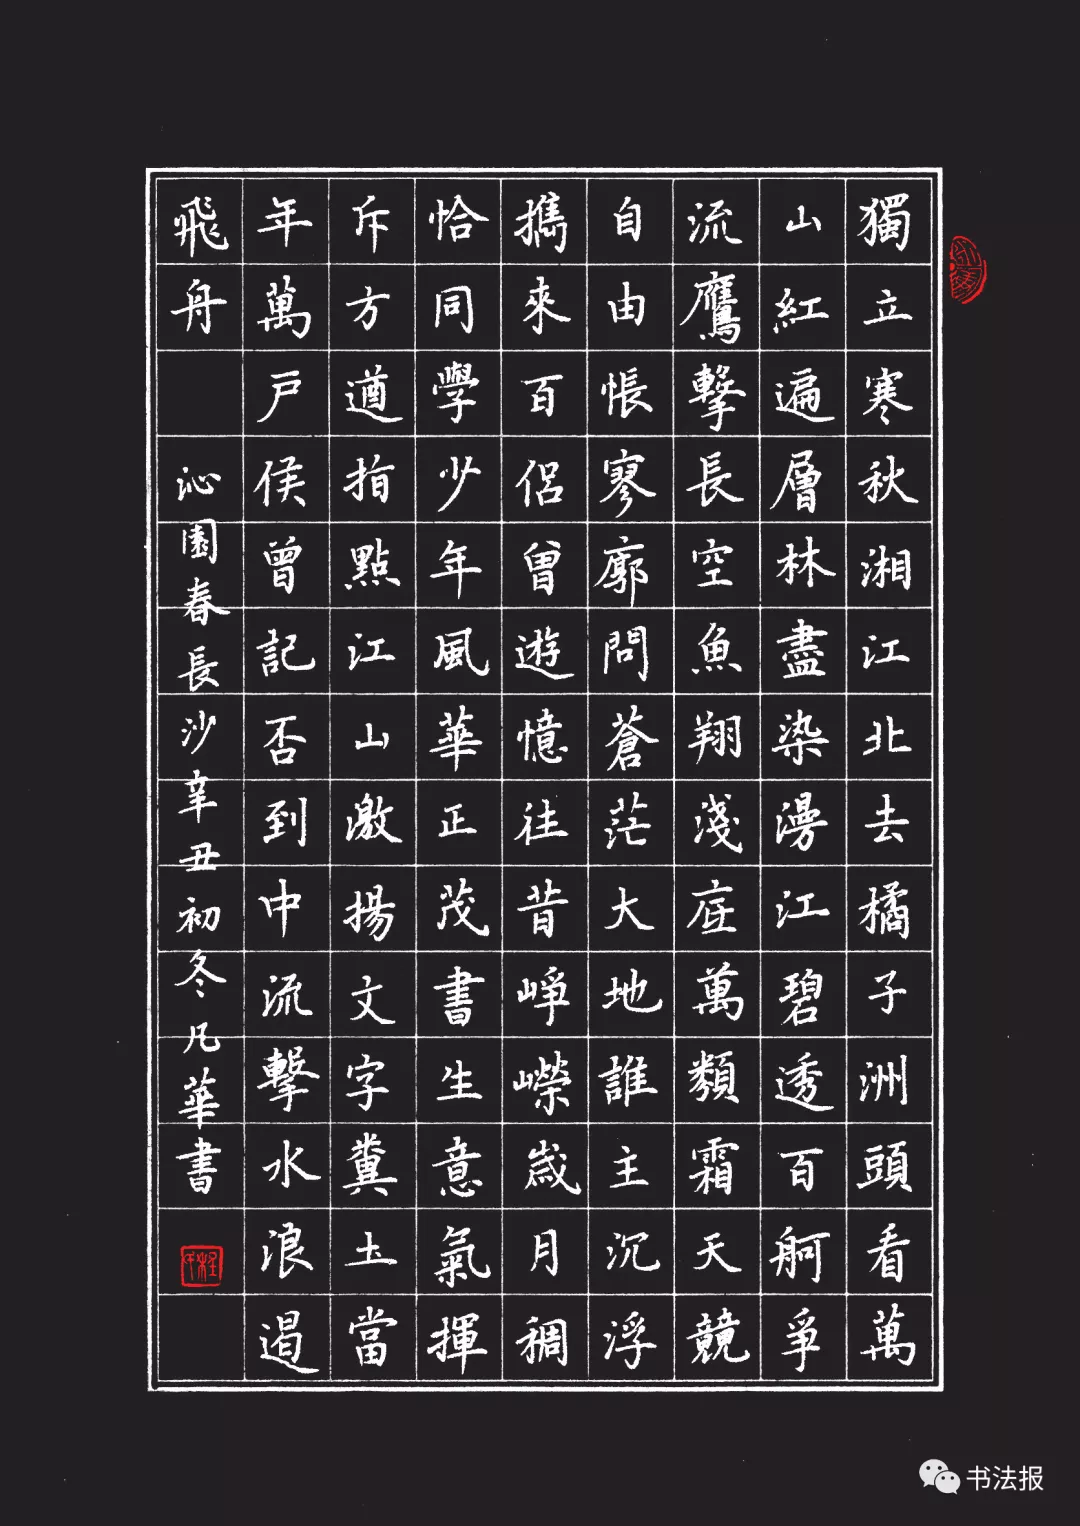 獨立寒秋湘江北去橘子洲頭看萬
山紅遍層林盡染漫江碧透百舸爭
流鷹擊長空魚翔淺底萬類霜天競
自由悵寥廓問蒼茫大地誰主沉浮
攜來百侶曾遊憶往昔崢嶸歲月稠
恰同學少年風華正茂書生意氣揮
斥方遒指點江山激揚文字糞土當
年萬戶侯曾記否到中流擊水浪遏
飛舟
沁園春長沙辛丑初冬凡華書
书法报